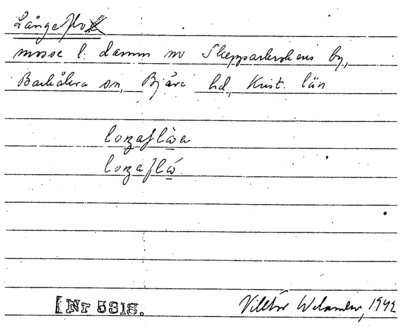 Långeflo
mosse l. damm nv Skepparkroken by,
Barkåkra sn, Bjäre hd, Krist. län
loŋaflòa
loŋafló
[Nr 5318.
Viktor Welander, 1942